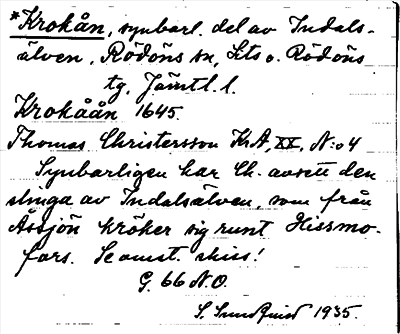 *Krokån, synbarl. del av Indals-
älven, Rödöns sn, Lits o. Rödöns
tg, Jämtl. l.
Krokåån 1645.
Thomas Christersson KrA, XX, N:o 4
Synbarligen har Ch. avsett den
slinga av Indalsälven, som från
Åssjön kröker sig runt Hissmo-
fors. Se omst. skiss!
G. 66 N.O.
S. Sundquist 1935.